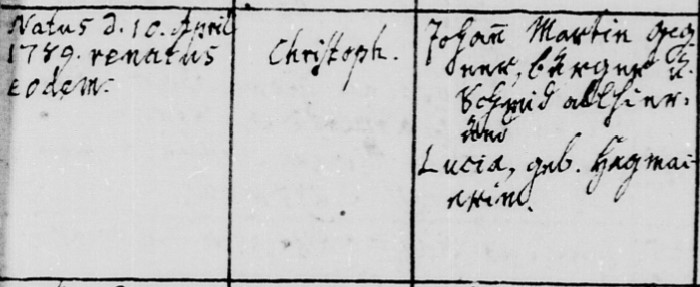 Natus d. 10. April
1789. renatus
eodem.
Christoph.
Johañ Martin Geg
ner, bürger u.
Schmid allhier.
und
Lucia, geb. Hagmai-
erin.